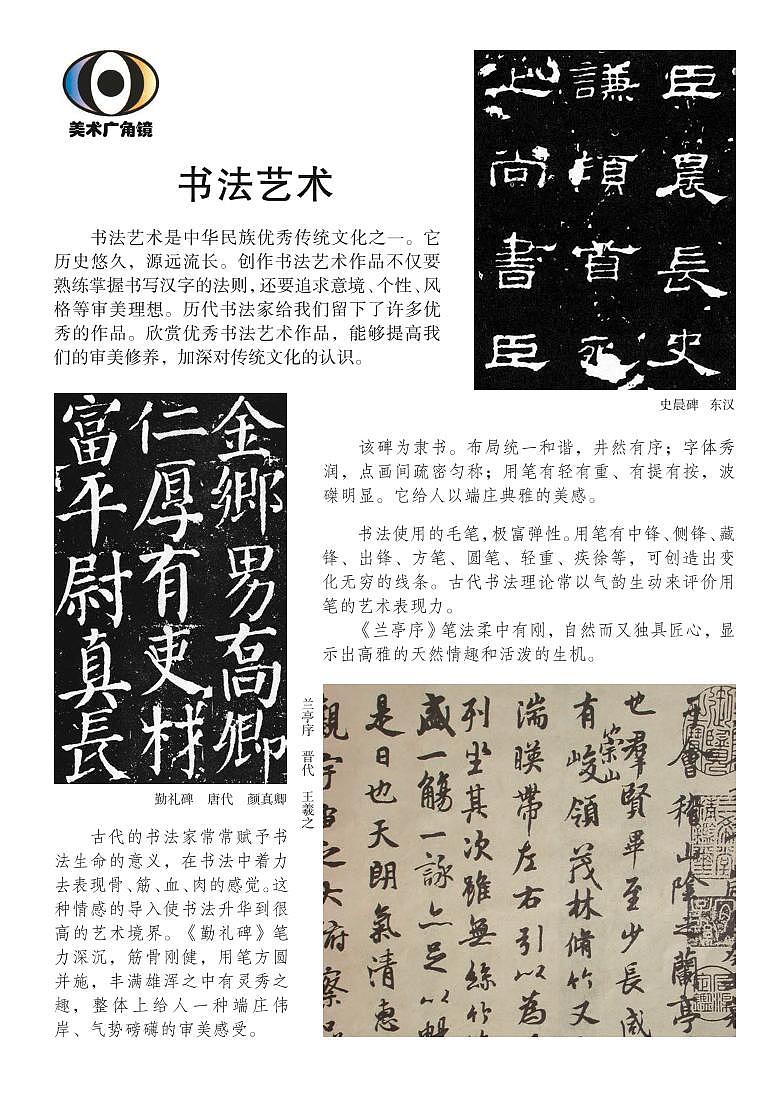 美术广角镜
书法艺术
书法艺术是中华民族优秀传统文化之一。它
历史悠久，源远流长。创作书法艺术作品不仅要
熟练掌握书写汉字的法则，还要追求意境、个性、风
格等审美理想。历代书法家给我们留下了许多优
秀的作品。欣赏优秀书法艺术作品，能够提高我
们的审美修养，加深对传统文化的认识。
臣晨長史
謙頓首死
上尚書臣
史晨碑 东汉
金鄉男高卿
仁厚有吏材
富平尉真長
勤礼碑 唐代 颜真卿
该碑为隶书。布局统一和谐，井然有序；字体秀
润，点画间疏密匀称；用笔有轻有重、有提有按，波
磔明显。它给人以端庄典雅的美感。
书法使用的毛笔，极富弹性。用笔有中锋、侧锋、藏
锋、出锋、方笔、圆笔、轻重、疾徐等，可创造出变
化无穷的线条。古代书法理论常以气韵生动来评价用
笔的艺术表现力。
《兰亭序》笔法柔中有刚，自然而又独具匠心，显
示出高雅的天然情趣和活泼的生机。
古代的书法家常常赋予书
法生命的意义，在书法中着力
去表现骨、筋、血、肉的感觉。这
种情感的导入使书法升华到很
高的艺术境界。《勤礼碑》笔
力深沉，筋骨刚健，用笔方圆
并施，丰满雄浑之中有灵秀之
趣，整体上给人一种端庄伟
岸、气势磅礴的审美感受。
兰亭序 晋代 王羲之
于會稽山陰之蘭亭
也羣賢畢至少長咸
有崇山峻領茂林脩竹又
湍暎帶左右引以為
列坐其次雖無絲竹
盛一觴一詠亦足以暢
是日也天朗氣清惠
觀宇宙之大俯察